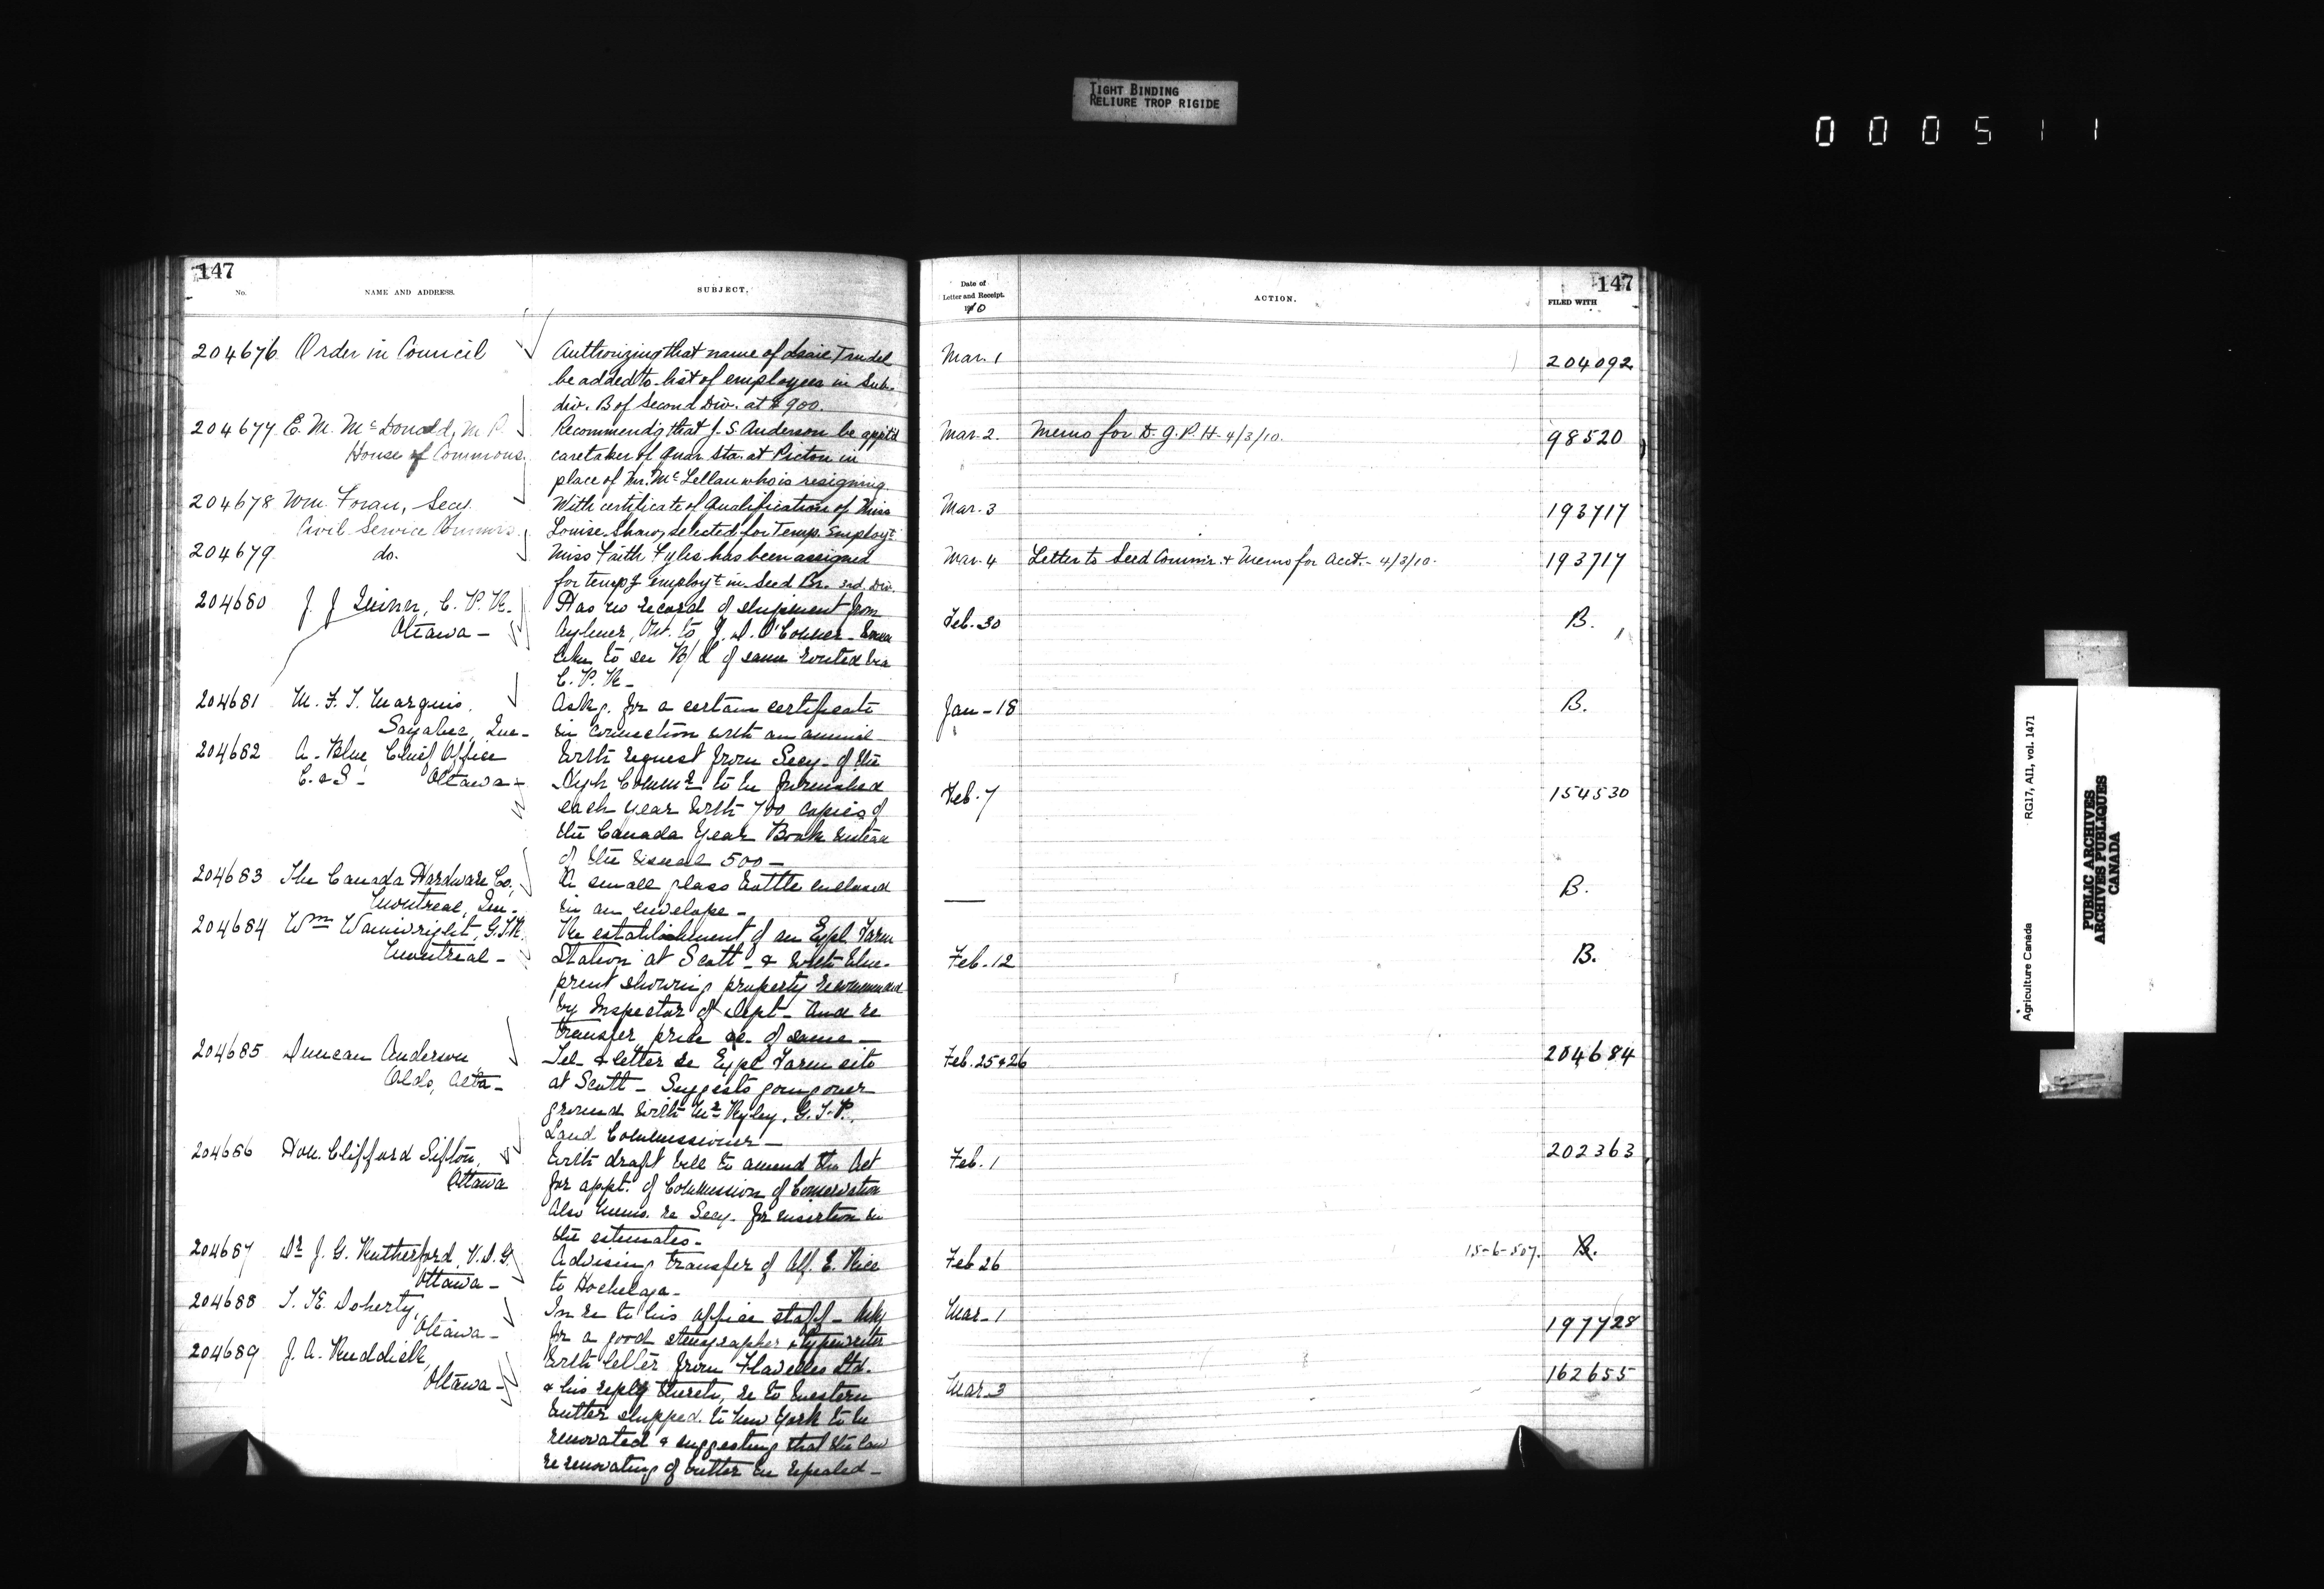 TIGHT BINDING
RELIURE TROP RIGIDE
000511
147
No.
NAME AND ADDRESS.
SUBJECT.
204676 Order in Council
Authorizing that name of Isaie Trudel
be added to list of employees in Sub.
div. B of Second Div. at $900.
204677 E. M. McDonald, M.P.
House of Commons
Recommendg that J. S. Anderson be app'td
caretaker of Quar. Sta. at Picton in
place of Mr. McLellan who is resigning.
204678 Wm. Foran, Secy.
Civil Service Commrs.
With certificate of Qualification of Miss
Louise Shaw, selected for Temp. Employt.
204679 do.
Miss Faith Fyles has been assigned
for tempy employt in Seed Br. 3rd Div.
204680 J. J. C. P. R.
Ottawa -
Has no record of shipment from
Aylmer, Ont. to J. D. O'Connor -
like to see B/L of same routed via
C. P. R. -
204681 M. F. T. Marquis.
Sayabec, Que -
Askg. for a certain certificate
in connection with an animal -
204682 A. Blue, Chief Office
C. & S - Ottawa -
With request from Secy - of the
High Commr. to be furnished
each year with 700 copies of
the Canada Year Book instead
of the usual 500 -
204683 The Canada Hardware Co.,
Montreal, Que -
A small glass bottle enclosed
in an envelope -
204684 Wm Wainwright, G.T.R.
Montreal -
Re establishment of an Expl Farm
Station at Scott - & with blue-
print showing property recommended
by Inspector of Dept - and re
transfer price &c. of same -
204685 Duncan Anderson
Alta -
Tel. & letter re Expl Farm site
at Scott - Suggests going over
ground with Mr Ryley, G.T.P.
Land Commissioner -
204686 Hon. Clifford Sifton,
Ottawa
With draft bill to amend the Act
for appt. of Commission of Conservation
Also memo. re Secy. for insertion in
the estimates -
204687 Dr J. G. Rutherford, V.D.G.
Ottawa -
Advising transfer of Alf. E. Rice
to Hochelaga -
204688 T. K. Doherty,
Ottawa -
In re to his office staff - Asks
for a good stenographer & typewriter
204689 J. A. Ruddick,
Ottawa -
With letter from Flavelles Ltd.
& his reply thereto, re to Western
butter shipped to New York to be
renovated & suggesting that the law
re renovating of butter be repealed -
Date of
Letter and Receipt.
1910
ACTION.
147
FILED WITH
Mar. 1 204092
Mar. 2. Memo for D. G. P. H. 4/3/10. 98520
Mar. 3 193717
Mar. 4 Letter to Seed Commr. & Memo for Acct. - 4/3/10. 193717
Feb. 30 B.
Jan - 18 B.
Feb. 7 154530
— B.
Feb. 12 B.
Feb. 25 & 26 204684
Feb. 1 202363
Feb 26 15-6-507. B.
Mar. 1 197728
Mar. 3 162655
Agriculture Canada RG17, AI1, vol. 1471
PUBLIC ARCHIVES
ARCHIVES PUBLIQUES
CANADA